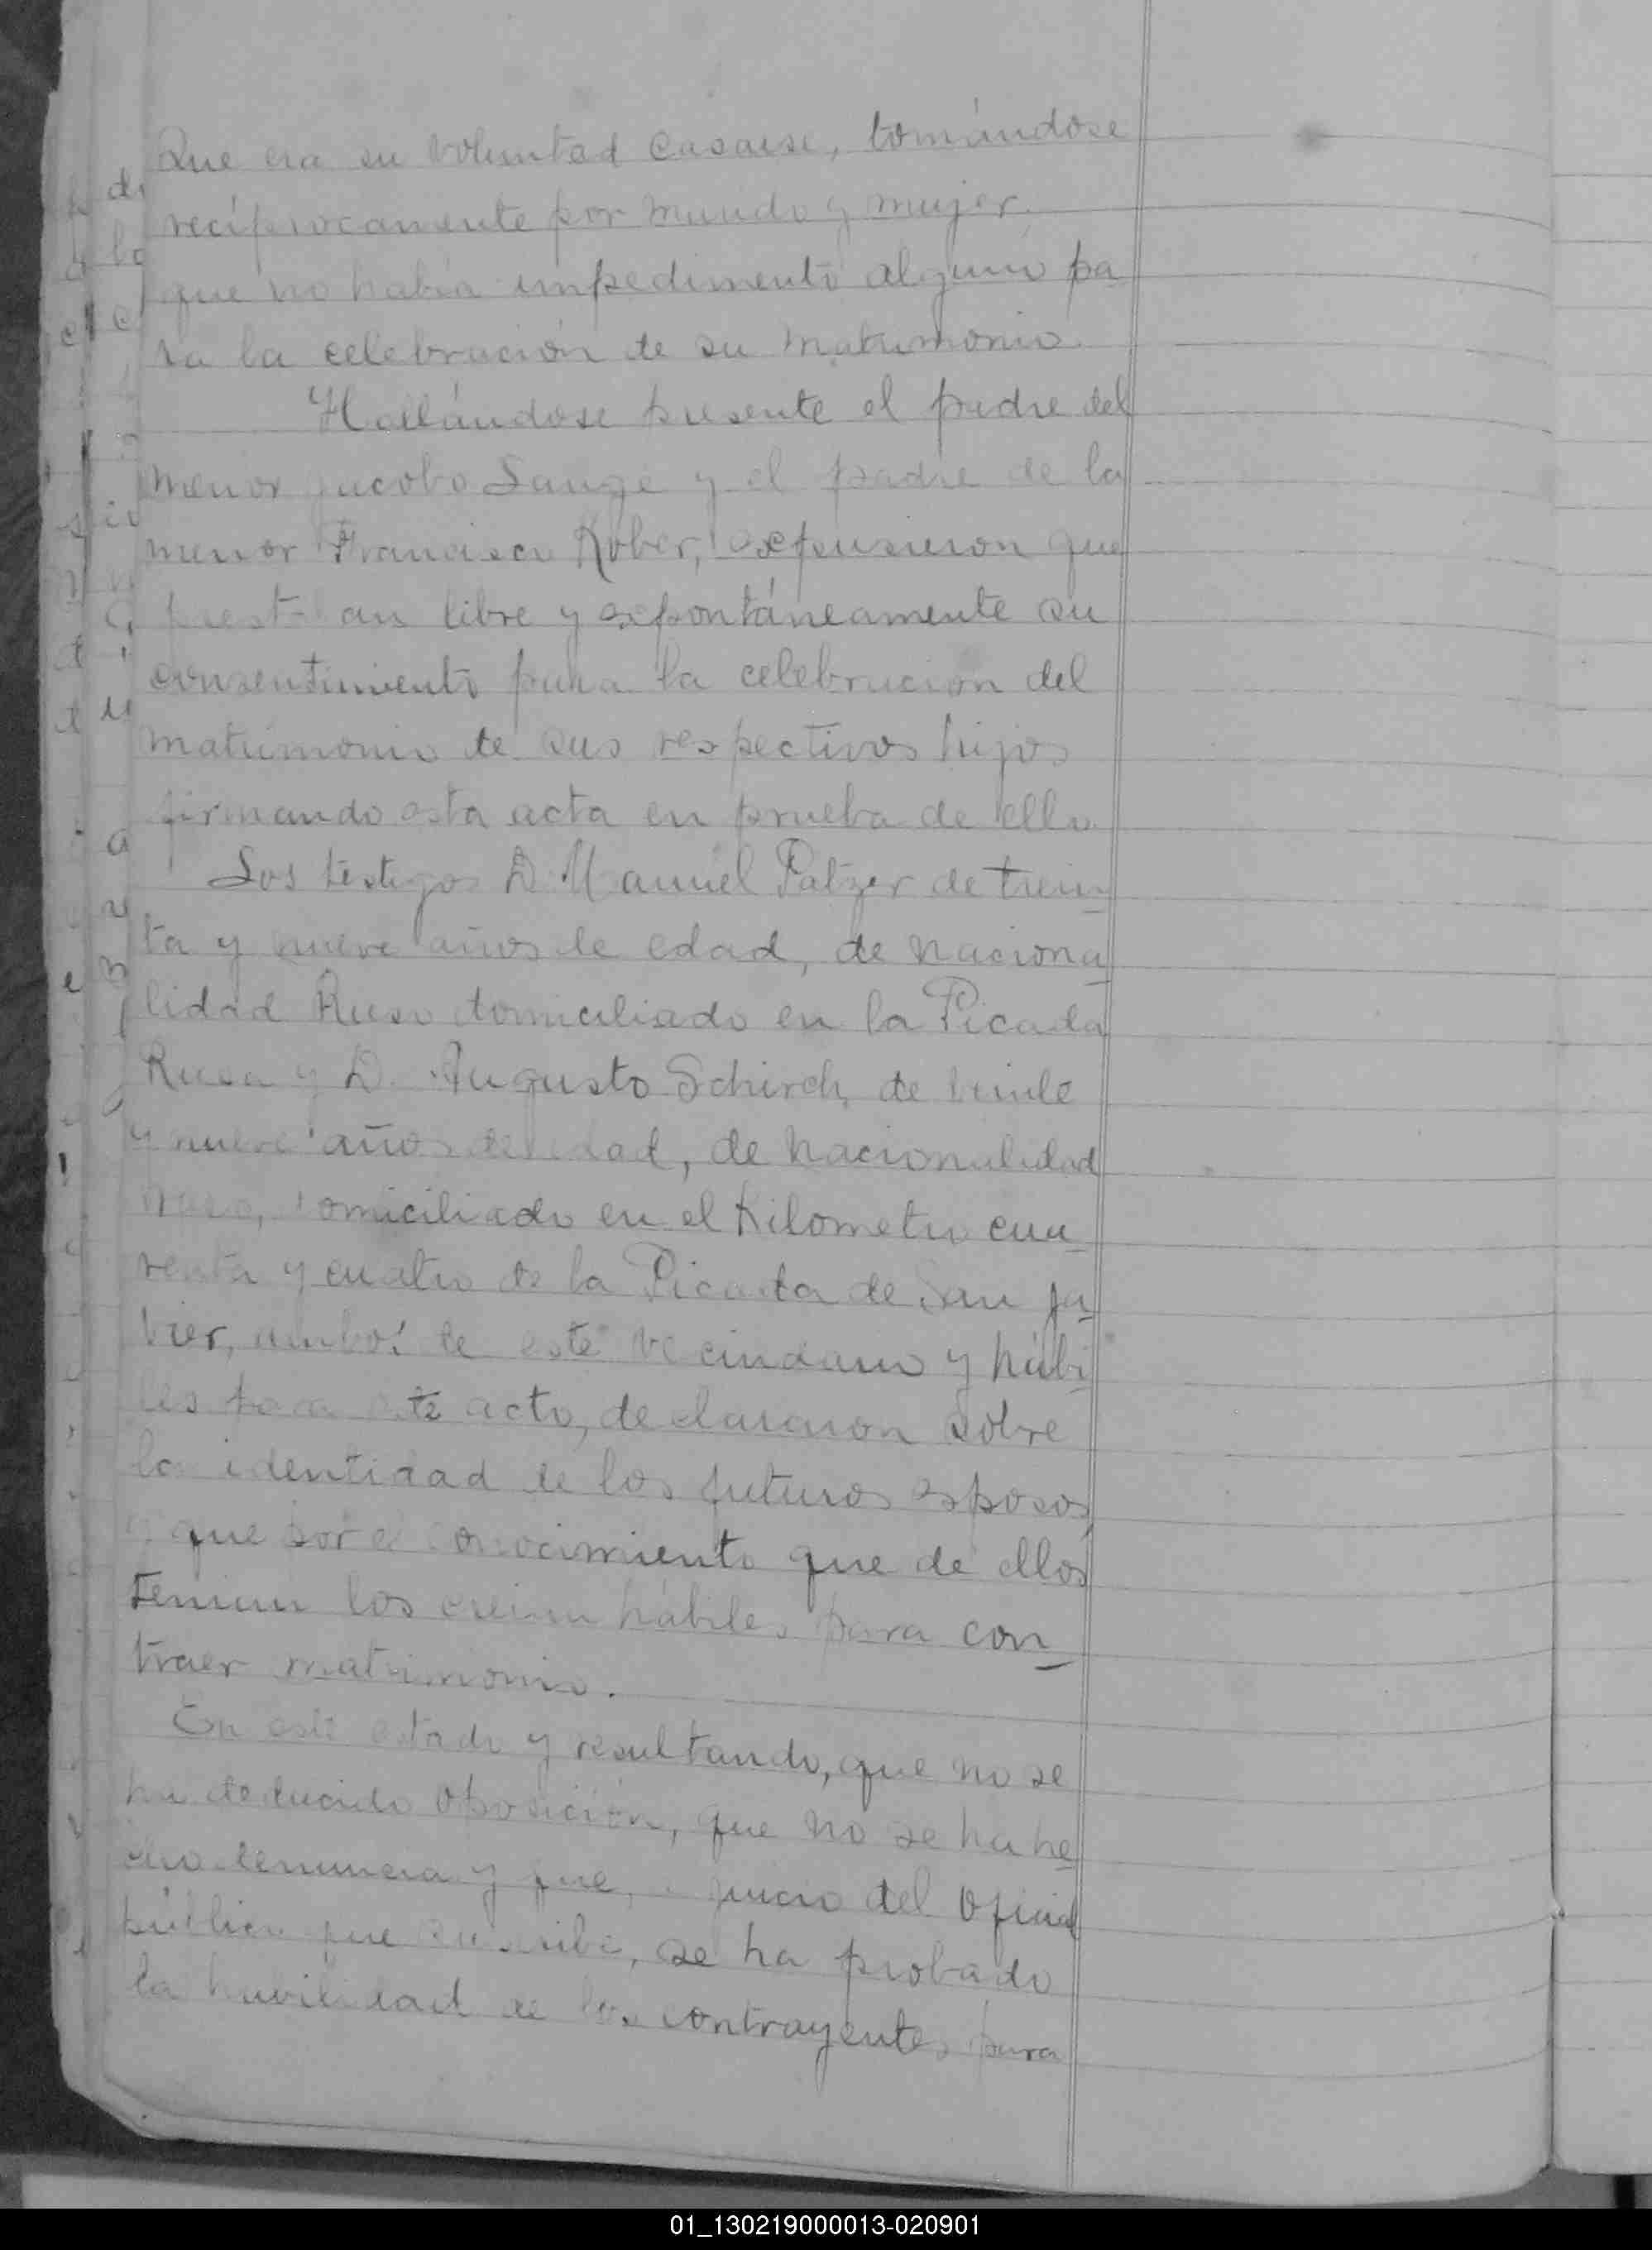 Que era su voluntad casarse, tomándose
recíprocamente por marido y mujer.
que no había impedimento alguno pa
ra la celebración de su matrimonio.
Hallándose presente el padre del
menor Jacobo Lange y el padre de la
menor Francisco Kober, expusieron que
prestaban libre y espontáneamente su
consentimiento para la celebración del
matrimonio de sus respectivos hijos
firmando esta acta en prueba de ello.
Los testigos D. Manuel Patzer de trein_
ta y nueve años de edad, de naciona_
lidad Ruso domiciliado en la Picada
Rusa y D. Augusto Schirch, de veinte
y nueve años de edad, de nacionalidad
ruso, domiciliado en el Kilometro cua_
renta y cuatro de la Picada de San Ja_
vier, ambos de este vecindario y hábi_
les para este acto, declararon sobre
la identidad de los futuros esposos,
y que por el conocimiento que de ellos
tenian los creian hábiles para con_
traer matrimonio.
En este estado y resultando, que no se
ha deducido oposición, que no se ha he_
cho denuncia y que, a juicio del Oficial
público que suscribe, se ha probado
la habilidad de los contrayentes para
01_130219000013-020901